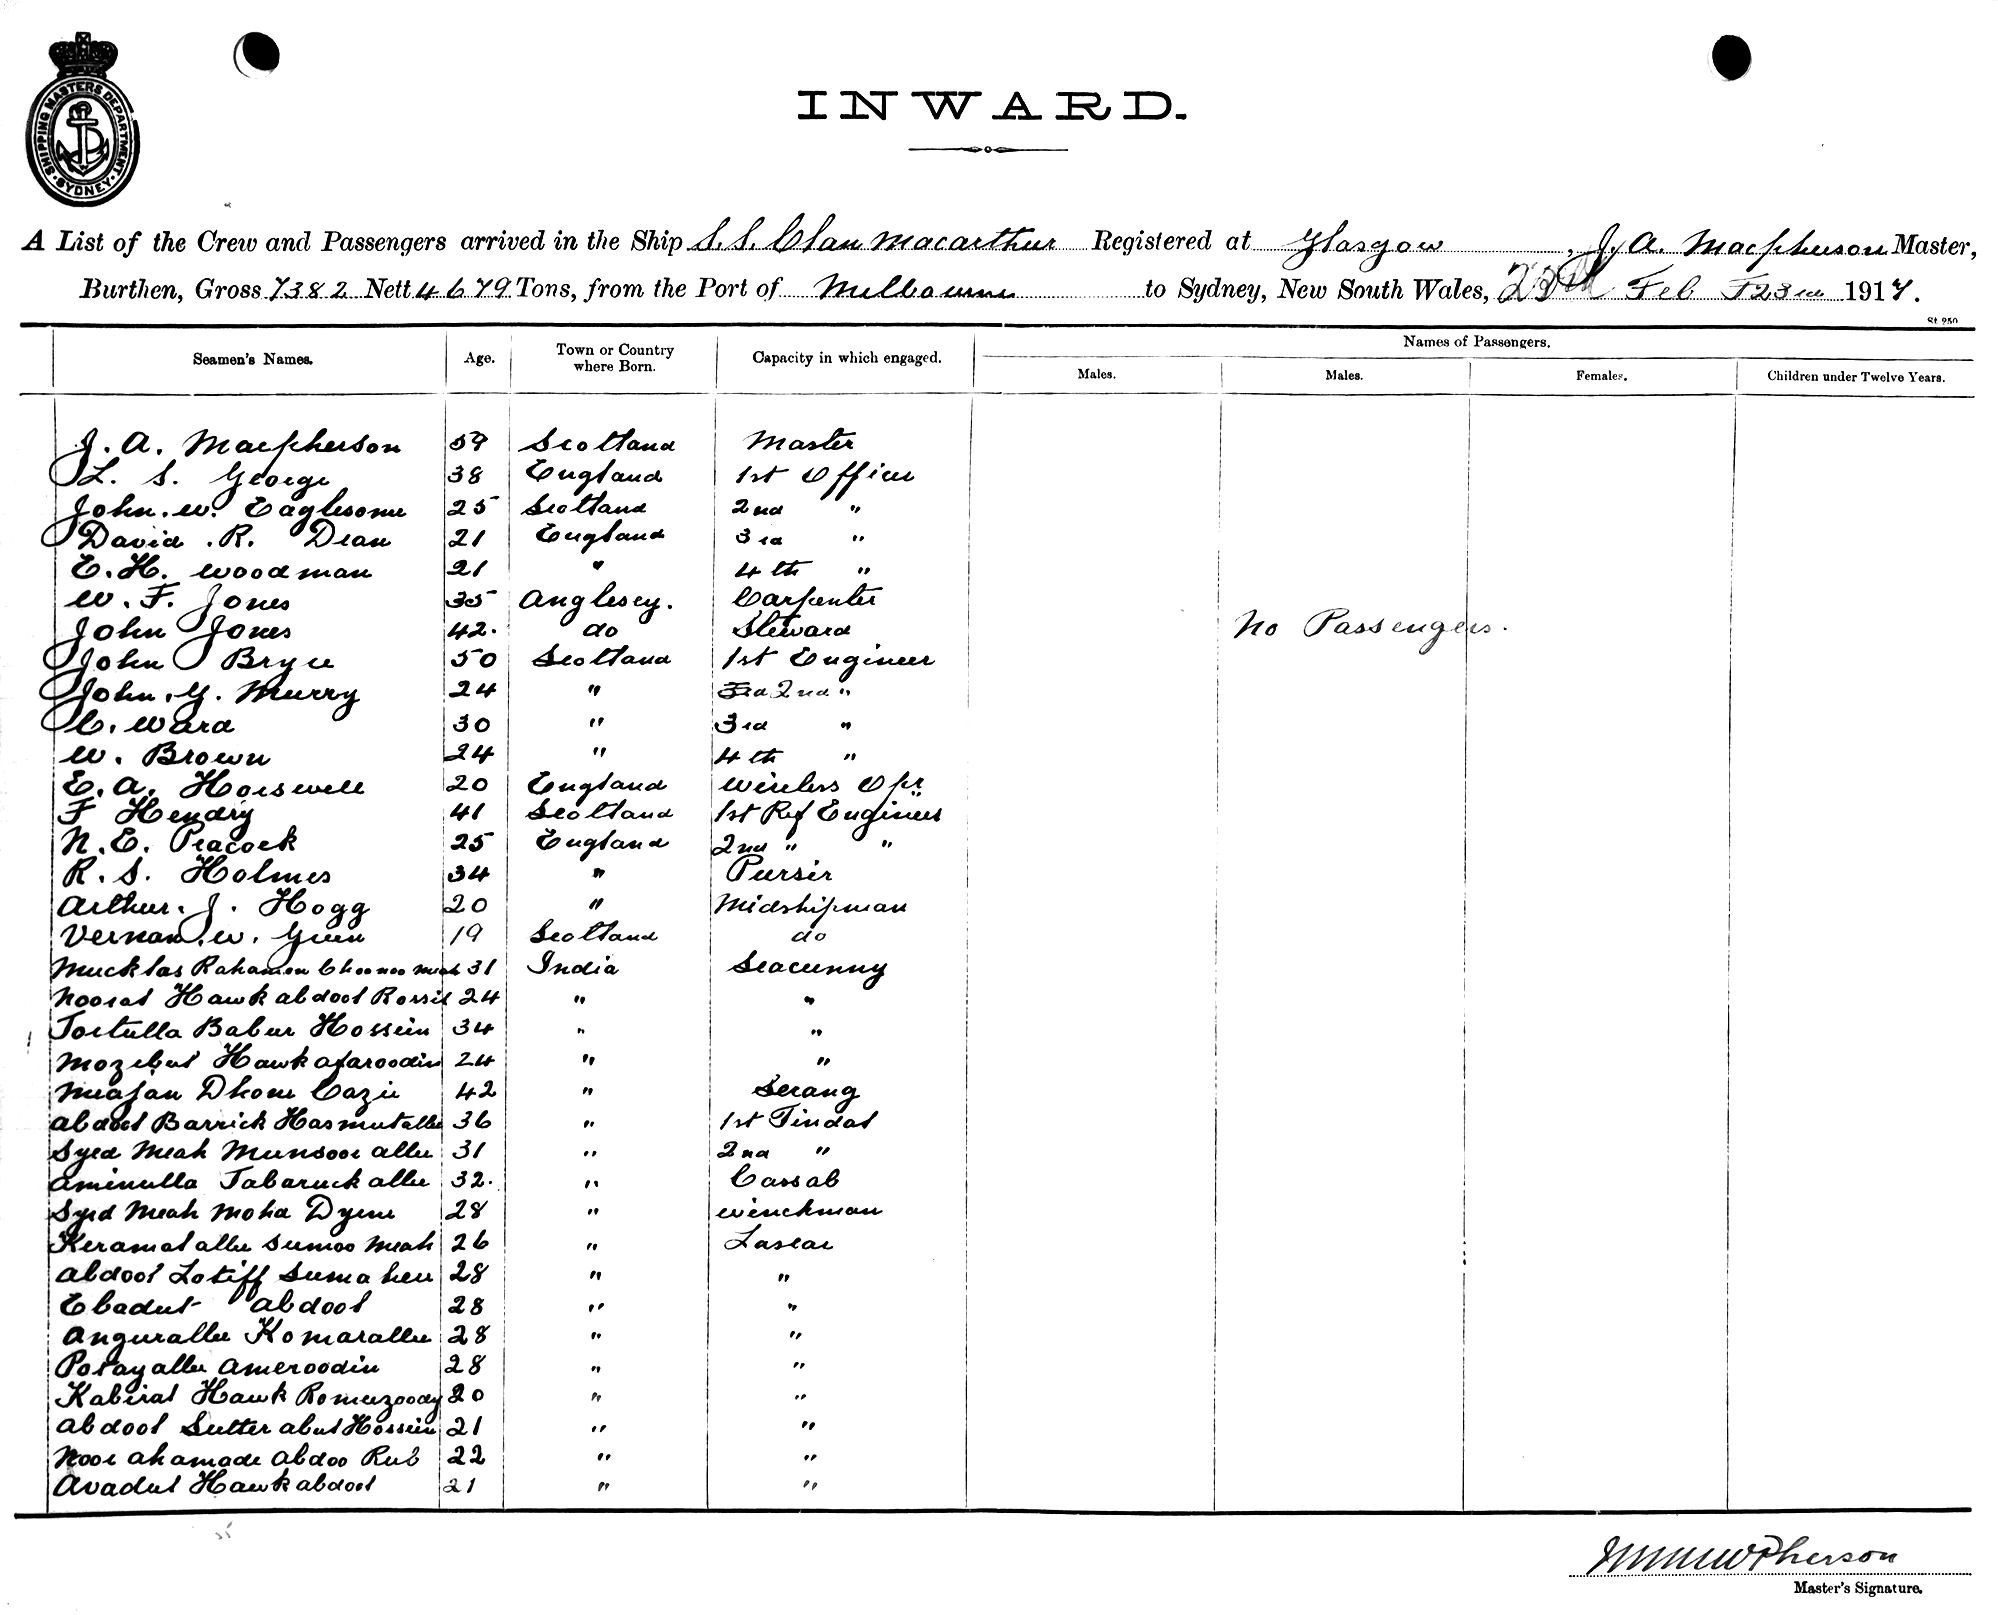 SHIPPING MASTERS DEPARTMENT
SYDNEY
INWARD.
A List of the Crew and Passengers arrived in the Ship S.S. Clan Macarthur Registered at Glasgow, J. A. Macpherson Master,
Burthen, Gross 7382 Nett 4679 Tons, from the Port of Melbourne to Sydney, New South Wales, Feb 23rd 1917.
St. 950
Seamen's Names. Age. Town or Country where Born. Capacity in which engaged. Names of Passengers.
Males. Males. Females. Children under Twelve Years.
J. A. Macpherson 59 Scotland Master
L. S. George 38 England 1st Officer
John. W. Eaglesome 25 Scotland 2nd "
David . R. Dean 21 England 3rd "
E. H. Woodman 21 " 4th "
W. F. Jones 35 Anglesey. Carpenter
John Jones 42. do Steward
No Passengers.
John Bryce 50 Scotland 1st Engineer
John. G. Murry 24 " 3rd 2nd "
C. Ward 30 " 3rd "
W. Brown 24 " 4th "
E. A. Horswell 20 England Wireless Opr
F Hendry 41 Scotland 1st Ref Engineer
N. E. Peacock 25 England 2nd " "
R. S. Holmes 34 " Purser
Arthur. J. Hogg 20 " Midshipman
Vernan. W. Green 19 Scotland do
Mucklas Rahaman Choonoo Meah 31 India Seacunny
Nooral Hawk Abdool Rossid 24 " "
Toetulla Babur Hossein 34 " "
Mozebul Hawk Afaroodin 24 " "
Meajan Dhone Cazie 42 " Serang
Abdool Barrick Hasmutallee 36 " 1st Tindal
Syed Meah Munsoor Allee 31 " 2nd "
Aminulla Tabaruck Allee 32. " Cassab
Syed Meah Moha Dyene 28 " Winchman
Keramatallee Sumoo Meah 26 " Lascar
Abdool Lotiff Suma 28 " "
Ebadut Abdool 28 " "
Angurallee Komarallee 28 " "
Potayallee Ameroodin 28 " "
Kabirat Hawk Romuzoody 20 " "
Abdool Sutter Abul Hossein 21 " "
Noor Ahamade Abdoo Rub 22 " "
Avadul Hawk Abdool 21 " "
Master's Signature.